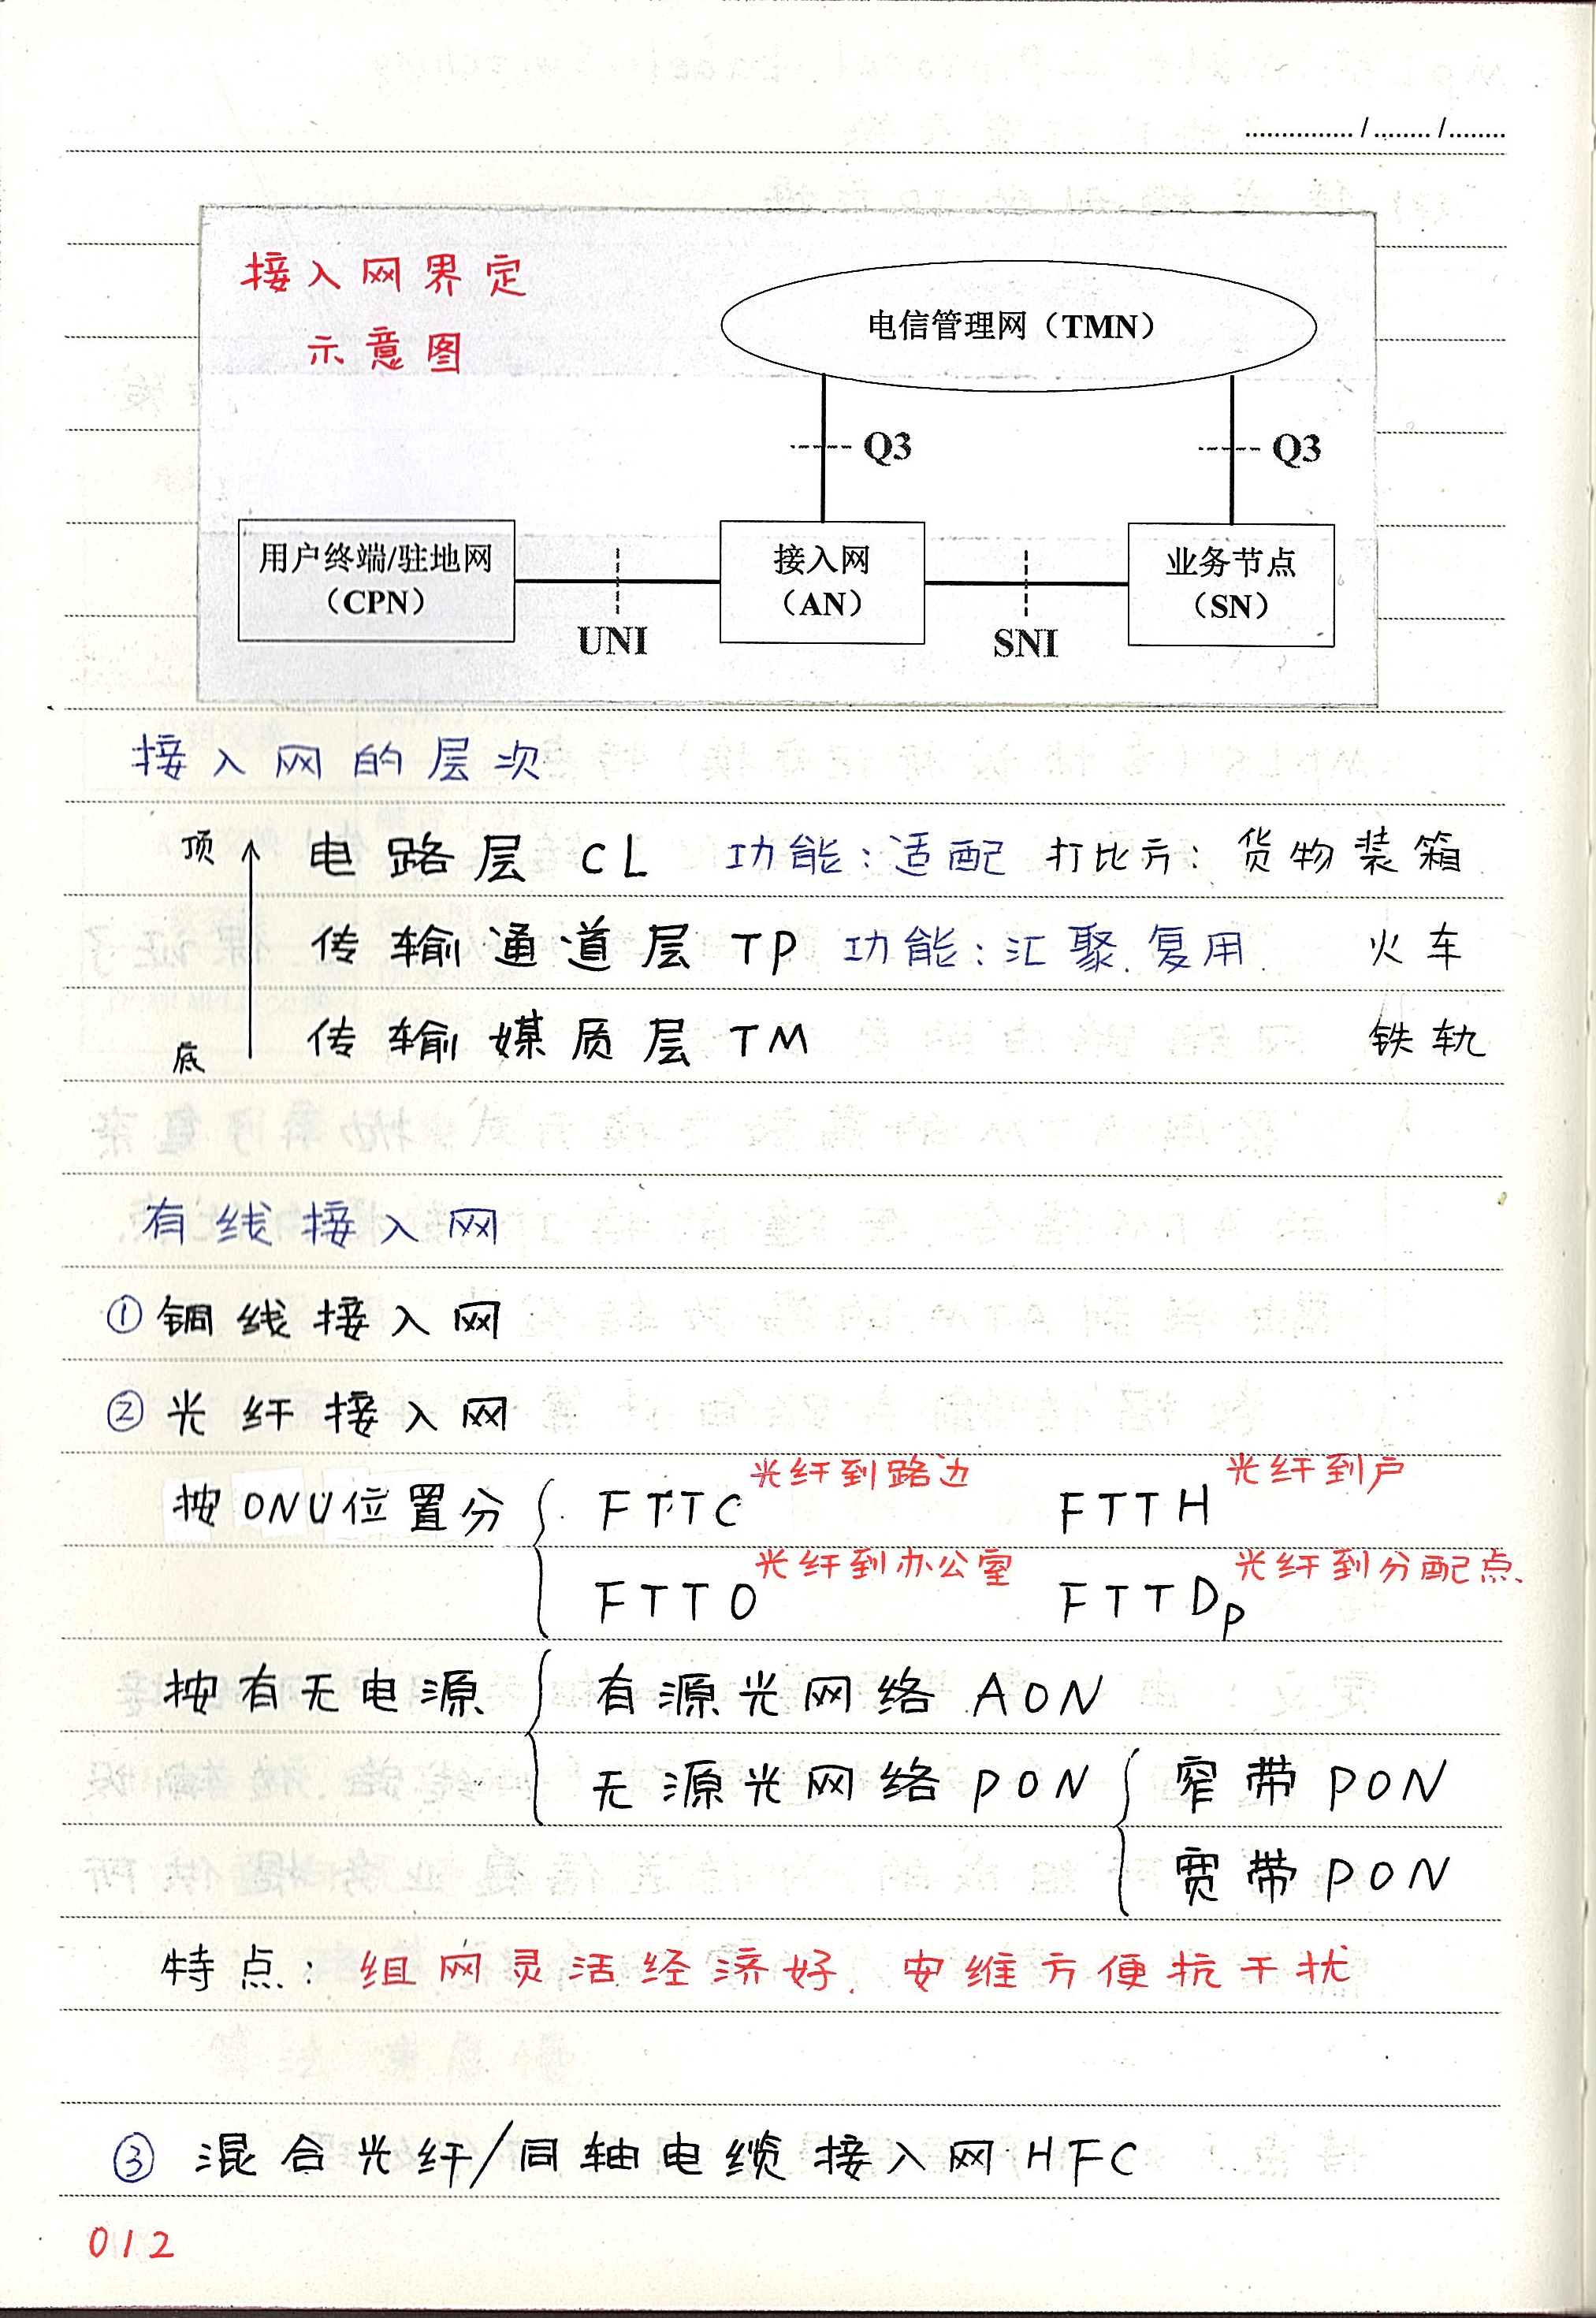 ............... / ........ / ........
接入网界定
示意图
电信管理网（TMN）
Q3
Q3
用户终端/驻地网
（CPN）
接入网
（AN）
业务节点
（SN）
UNI
SNI
接入网的层次
顶 电路层 CL 功能：适配 打比方：货物装箱
传输通道层 TP 功能：汇聚、复用 火车
底 传输媒质层 TM 铁轨
有线接入网
①铜线接入网
②光纤接入网
按ONU位置分 FTTC 光纤到路边 FTTH 光纤到户
FTTO 光纤到办公室 FTTDp 光纤到分配点
按有无电源 有源光网络 AON
无源光网络 PON 窄带 PON
宽带 PON
特点：组网灵活经济好、安维方便抗干扰
③ 混合光纤/同轴电缆接入网 HFC
012